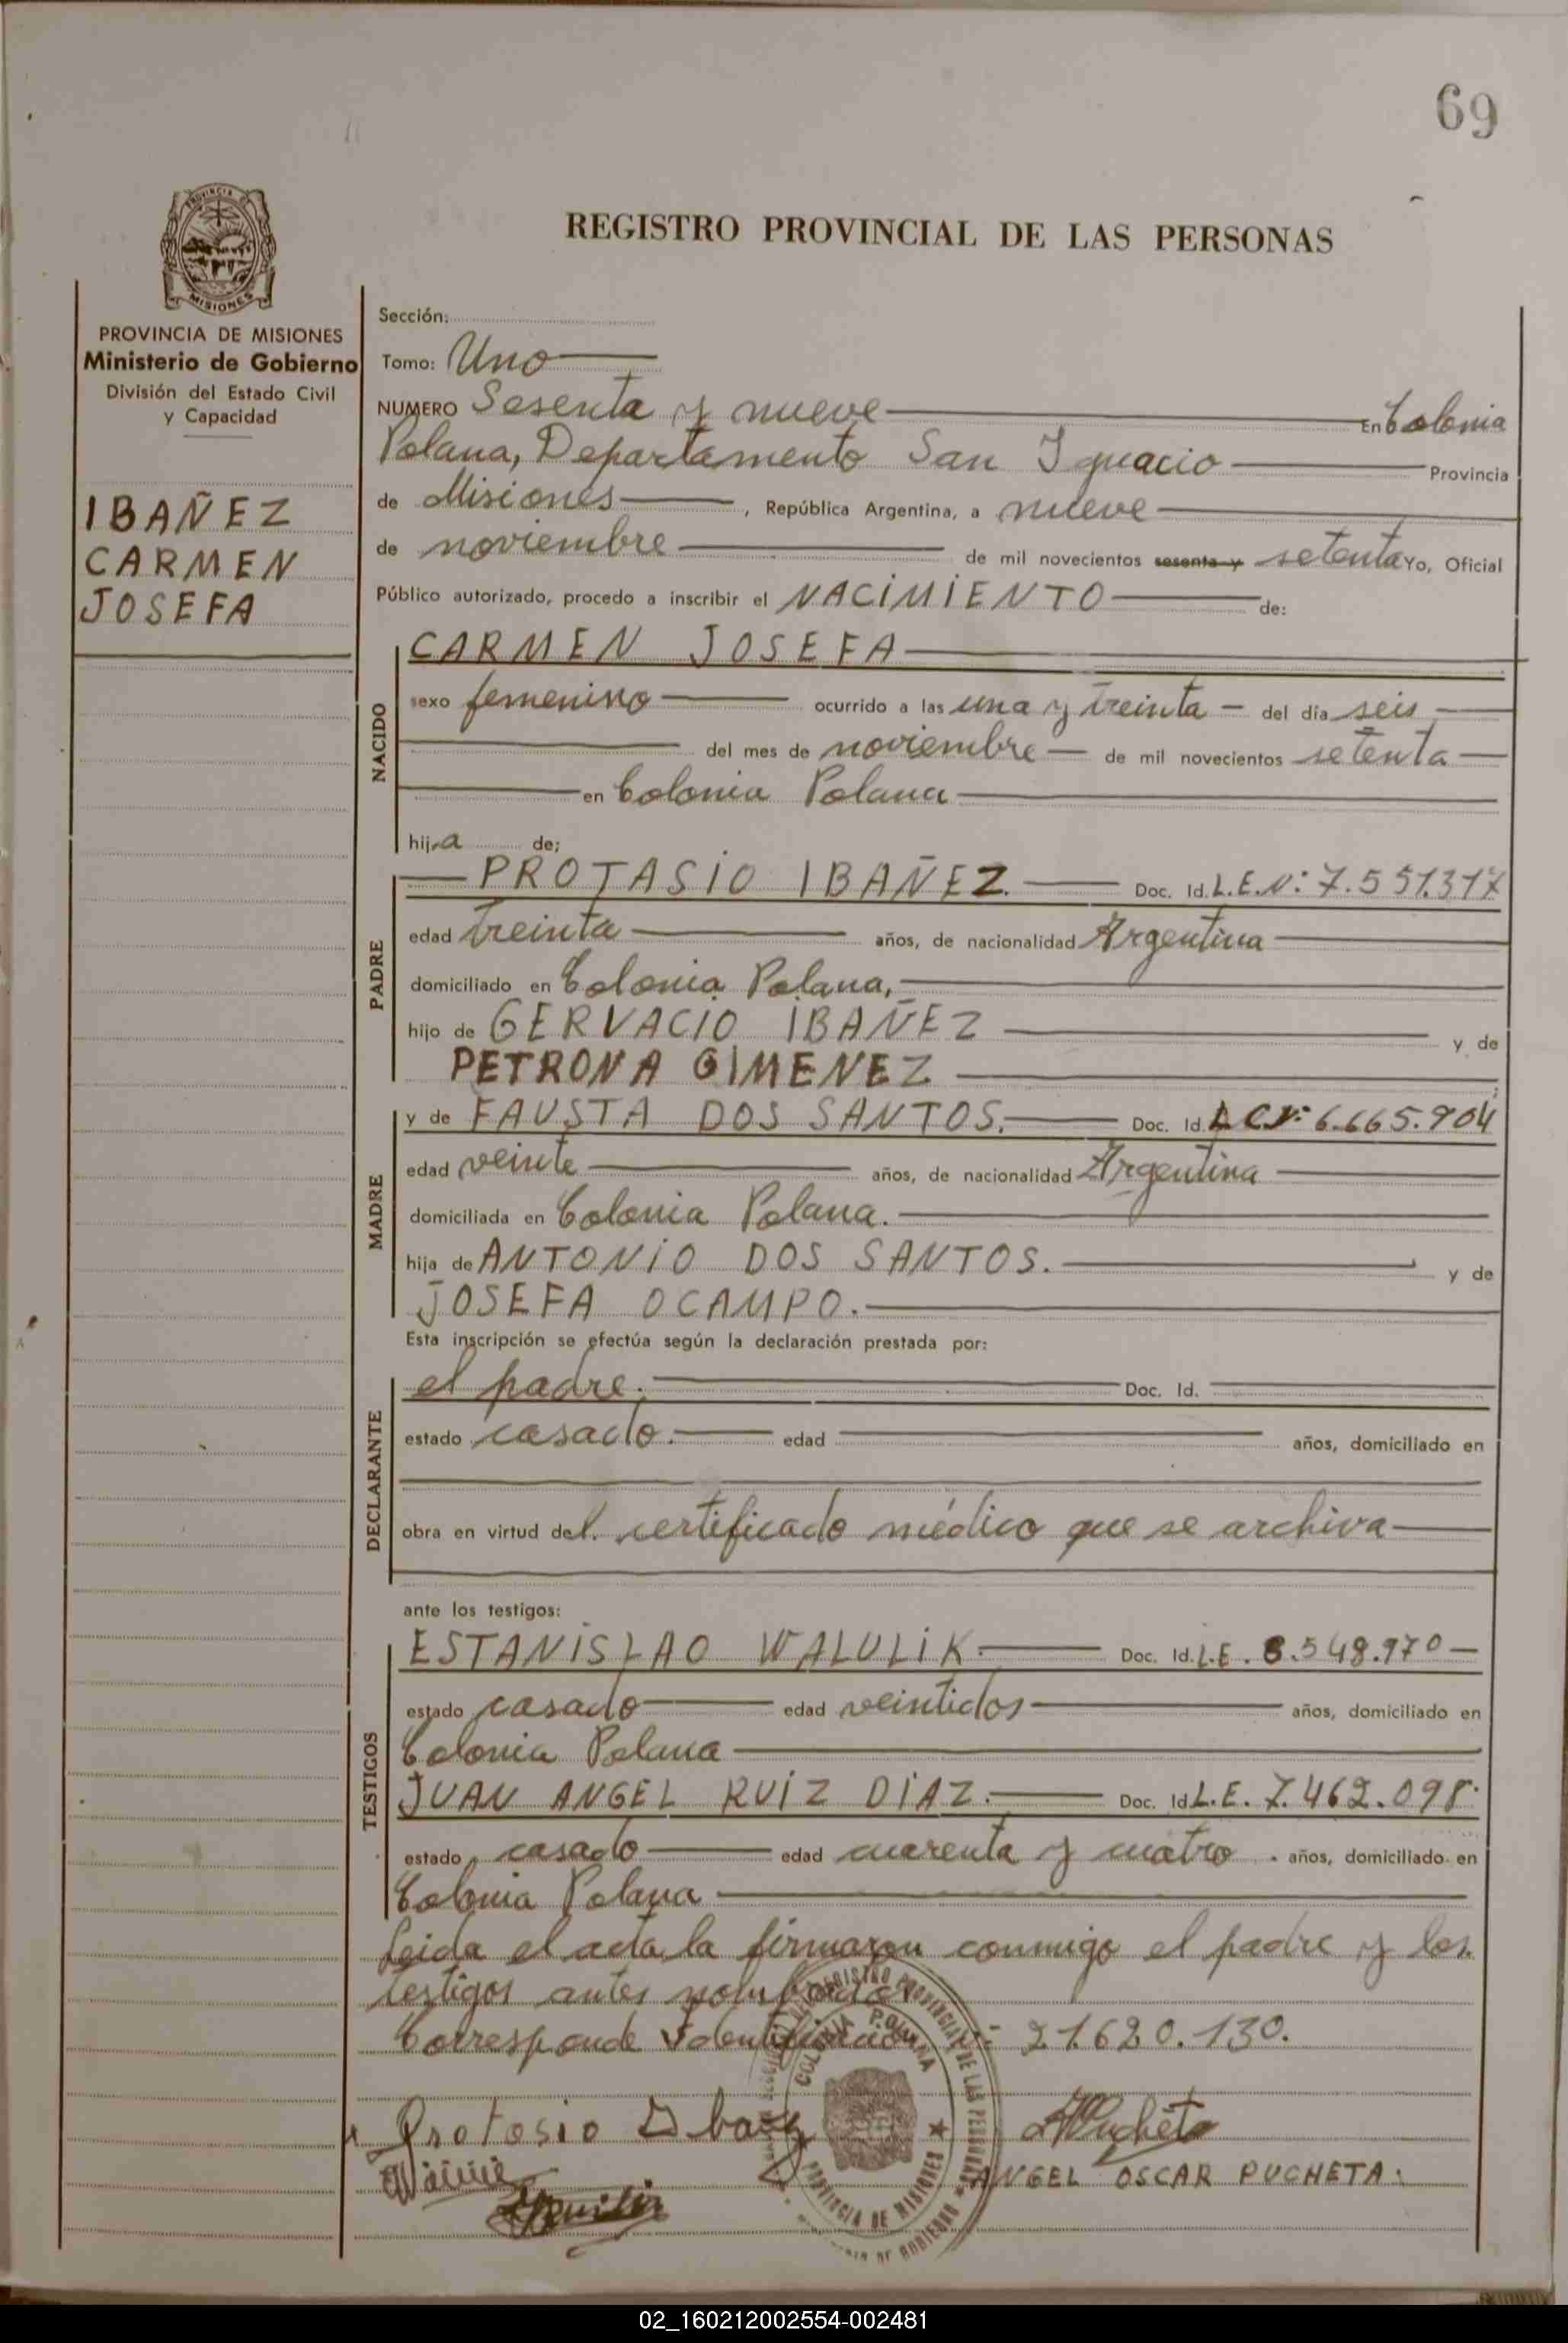 69
PROVINCIA DE
MISIONES
REGISTRO PROVINCIAL DE LAS PERSONAS
PROVINCIA DE MISIONES
Ministerio de Gobierno
División del Estado Civil
y Capacidad
IBAÑEZ
CARMEN
JOSEFA
Sección:
Tomo: Uno
NUMERO Sesenta y nueve En Colonia
Polana, Departamento San Ignacio Provincia
de Misiones, República Argentina, a nueve
de noviembre de mil novecientos sesenta y setenta Yo, Oficial
Público autorizado, procedo a inscribir el NACIMIENTO de:
NACIDO
CARMEN JOSEFA
sexo femenino ocurrido a las una y treinta del día seis
del mes de noviembre de mil novecientos setenta
en Colonia Polana
hija de;
PADRE
PROTASIO IBAÑEZ. Doc. Id. L.E.N: 7.551.317
edad treinta años, de nacionalidad Argentina
domiciliado en Colonia Polana,
hijo de GERVACIO IBAÑEZ y de
PETRONA GIMENEZ
MADRE
y de FAUSTA DOS SANTOS. Doc. Id. 6.665.904
edad veinte años, de nacionalidad Argentina
domiciliada en Colonia Polana.
hija de ANTONIO DOS SANTOS. y de
JOSEFA OCAMPO.
Esta inscripción se efectúa según la declaración prestada por:
DECLARANTE
el padre. Doc. Id.
estado casado. edad años, domiciliado en
obra en virtud del. certificado médico que se archiva
ante los testigos:
TESTIGOS
ESTANISLAO WALULIK. Doc. Id. L.E. 8.548.970
estado casado edad veintidos años, domiciliado en
Colonia Polana
JUAN ANGEL RUIZ DIAZ. Doc. Id. L.E. 7.462.098.
estado casado edad cuarenta y cuatro. años, domiciliado en
Colonia Polana
Leida el acta la firmaron conmigo el padre y los
testigos antes nombrados
Corresponde 21.620.130.
COLONIA POLANA
PROVINCIA DE MISIONES
Protasio
ANGEL OSCAR PUCHETA.
02_160212002554-002481